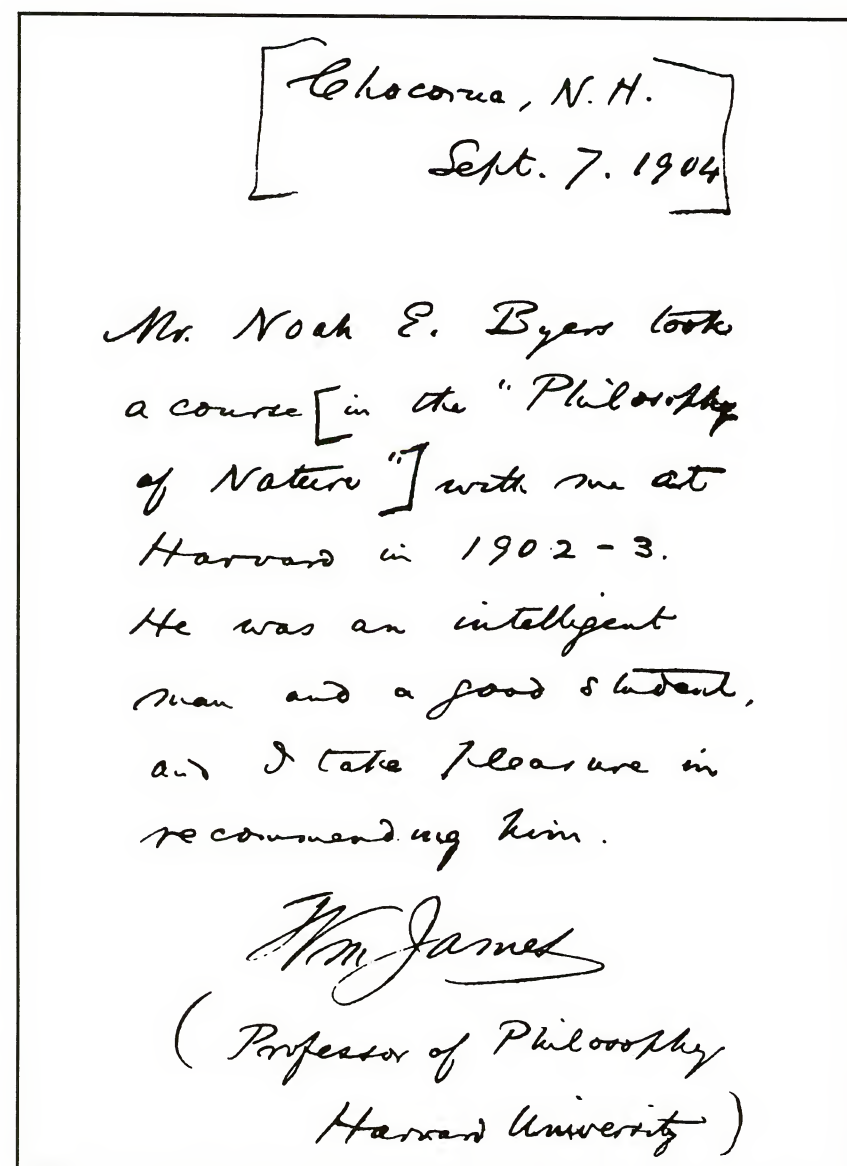 [Chocorua, N.H.
Sept. 7. 1904]
Mr. Noah E. Byers took
a course [in the "Philosophy
of Nature"] with me at
Harvard in 1902-3.
He was an intelligent
man and a good student,
and I take pleasure in
recommending him.
Wm James
(Professor of Philosophy
Harvard University)